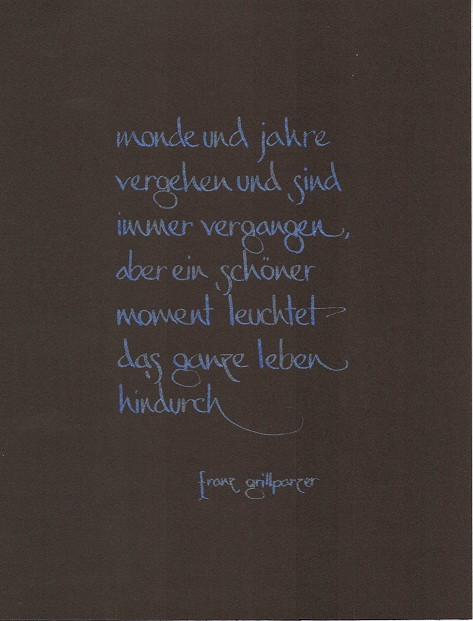 monde und jahre
vergehen und sind
immer vergangen,
aber ein schöner
moment leuchtet
das ganze leben
hindurch
franz grillparzer